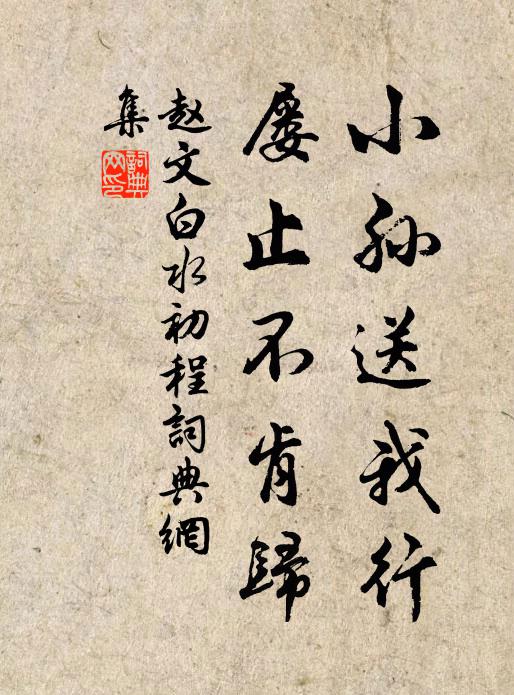 小孙送我行
屡止不肯歸
赵文白水初程詞典網
集
詞典
网印